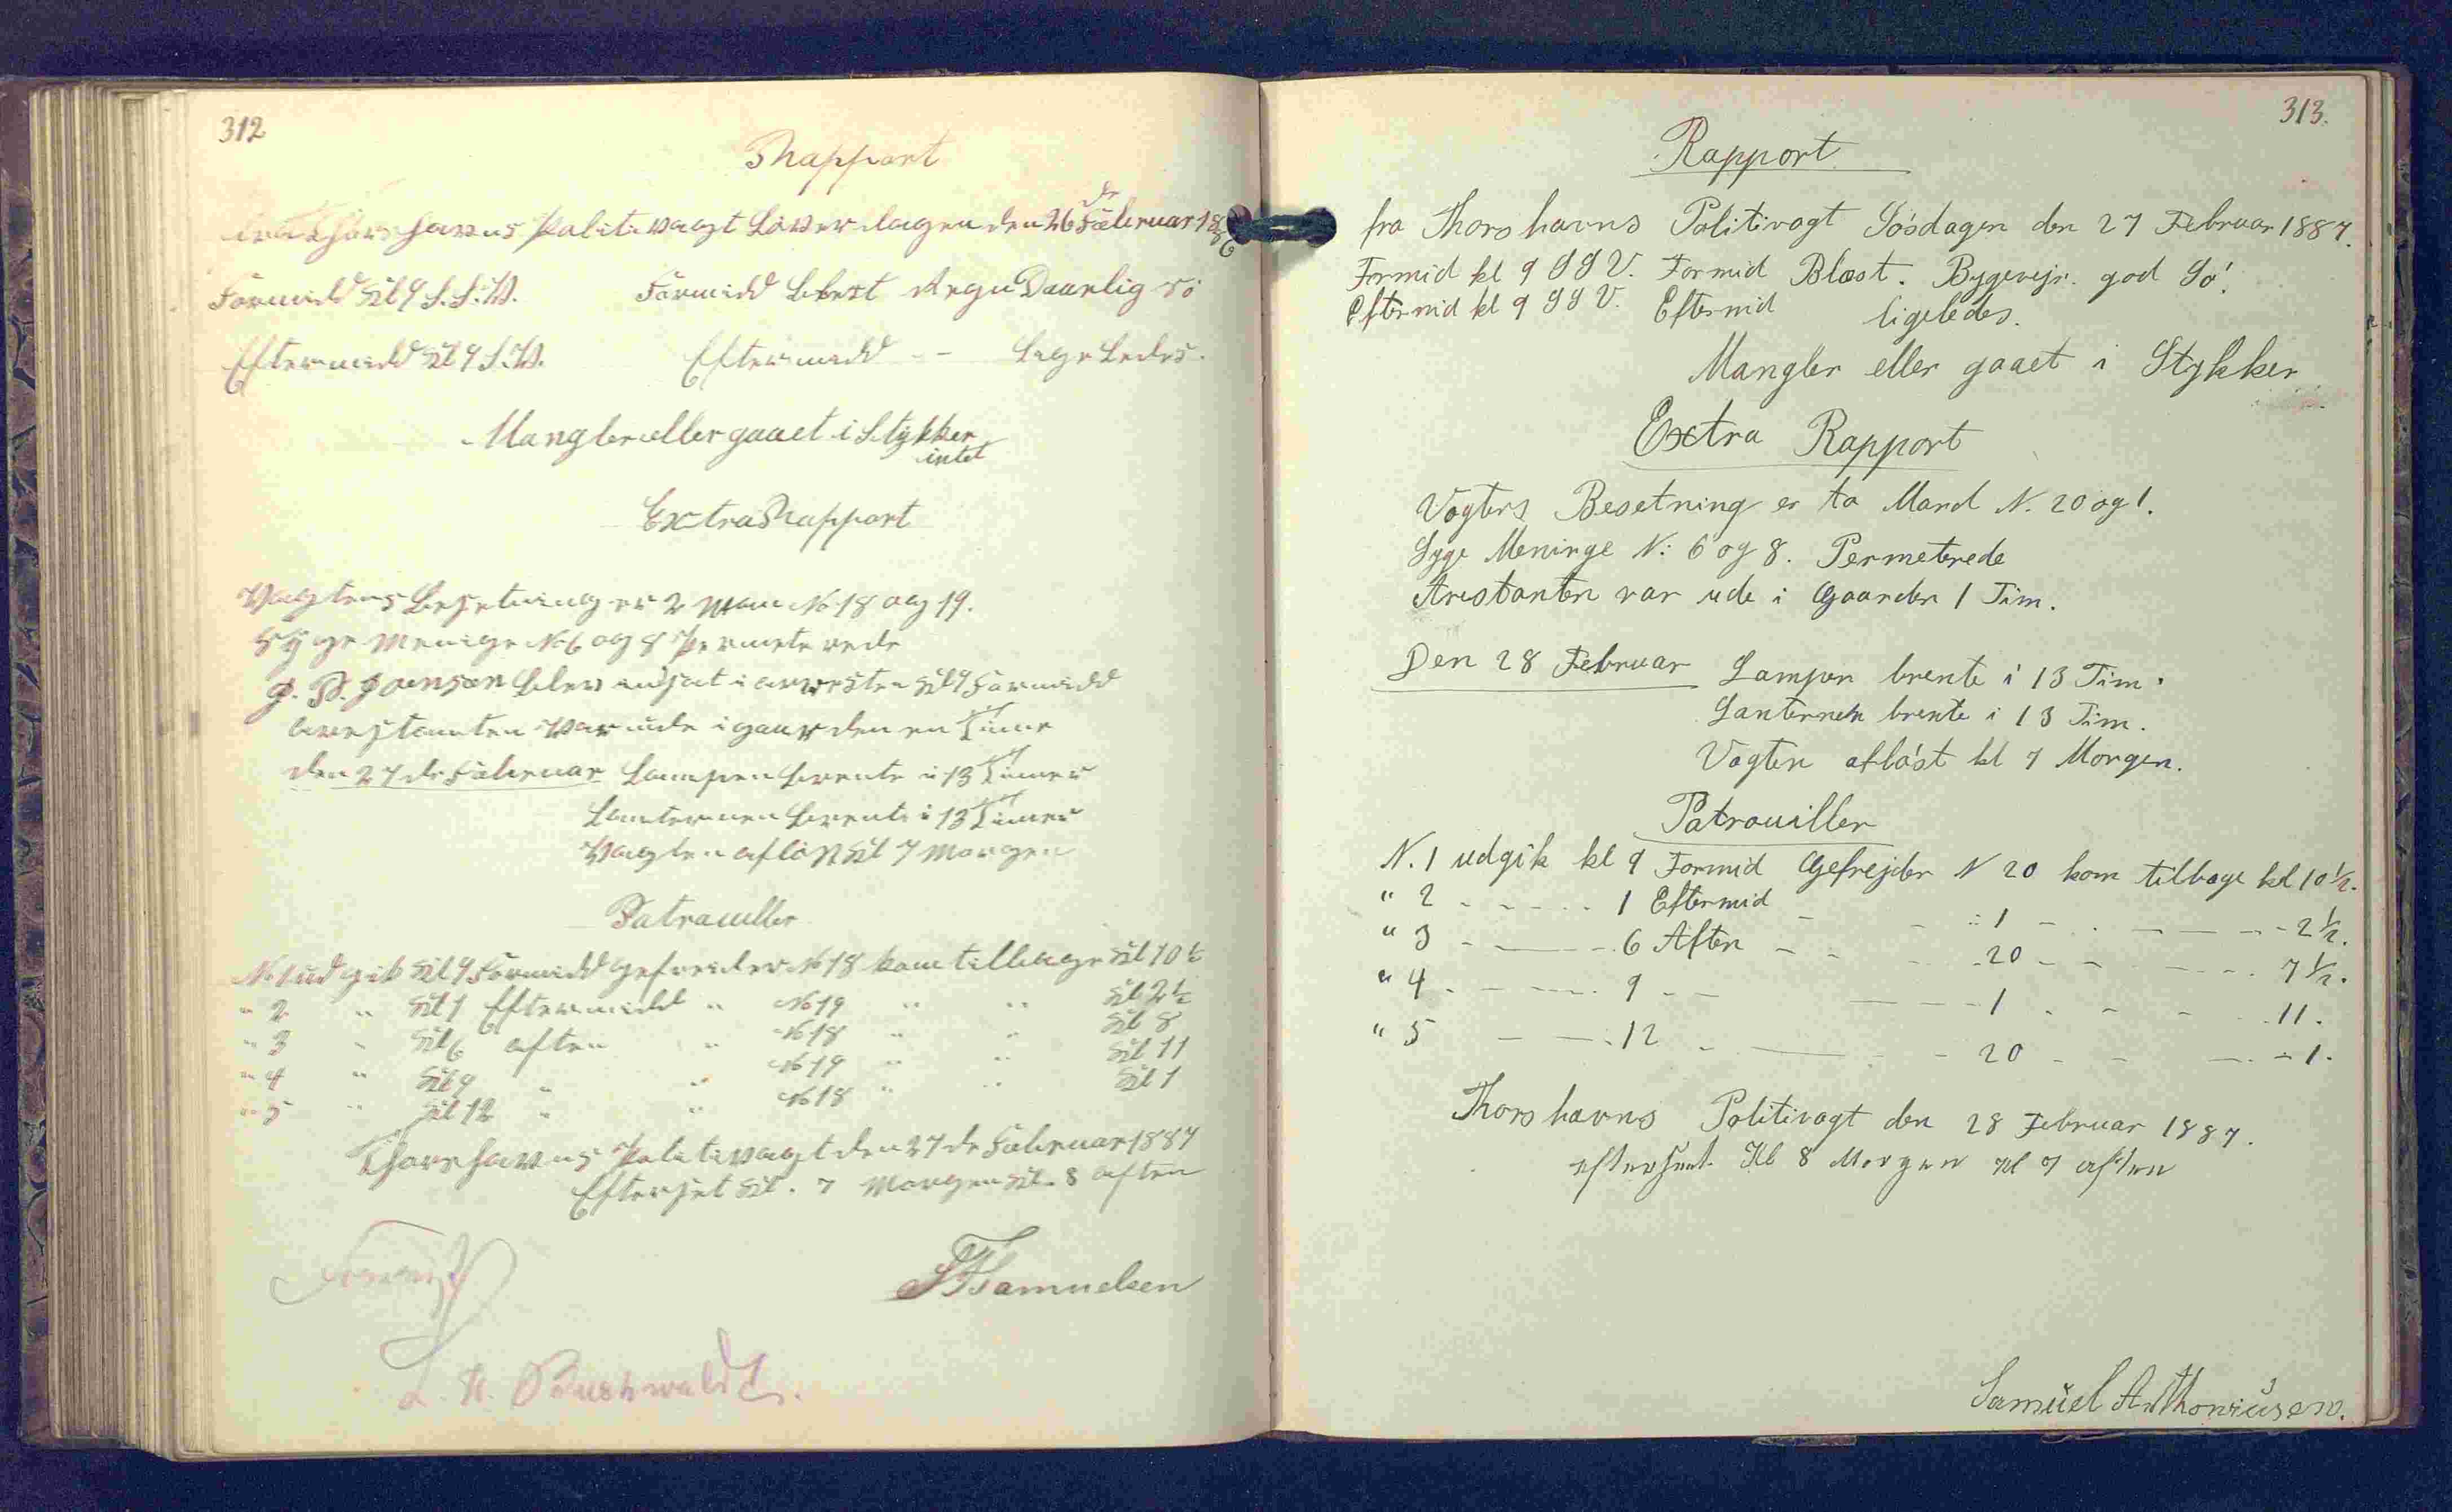 312
Rapport
fra Thorshavns Politivagt Løverdagen den 26 de Februar 188
Formidd Kl 9 S.S.V. Formidd blæst Regn Daarlig Sö
Eftermidd Kl 9 S.V. Eftermidd - - lige ledes.
Mangler eller gaaet i Stykker
intet
Extra Rapport
Vagtens besetning er 2 Man No 18 og 19.
Syge Menige No 6 og 8 Permeterede
J. P. Joensen blev insat i arresten Kl 9 Formidd
arestanten var ude i gaarden en Time
den 27 de Februar Lampen brente i 13 Timer
Lanternen brente i 13 Timer
Vagten aflöst Kl 7 Morgen
Patrouller
No 1 udgik Kl 9 Formidd gefreider No 18 kom tilbage Kl 10 ½
" 2 " Kl 1 Eftermidd " No 19 " " Kl 2 ½
" 3 " Kl 6 aften " No 18 " " Kl 8
" 4 " Kl 9 " " No 19 " " Kl 11
" 5 " Kl 12 " " No 18 " " Kl 1
Thorshavns Politivagt den 27 de Februar 1887
Efterset Kl. 7 Morgen Kl. 8 aften
Samuelsen
313.
Rapport
fra Thorshavns Politivagt Sösdagen den 27 Februar 1887.
Formid kl 9 S S V. Formid Blæst. Bygevejr. god Sö.
Eftermid kl 9 S S V. Eftermid ligeledes.
Mangler eller gaaet i Stykker
Extra Rapport
Vagters Besetning er to Mand N. 20 og 1.
Syge Meninge N: 6 og 8. Permeterede
Arestanten var ude i Gaarden 1 Tim.
Den 28 Februar Lampen brente i 13 Tim.
Lanternen brente i 13 Tim.
Vagten aflöst kl 7 Morgen.
Patrouiller
N. 1 udgik kl 9 Formid Gefrejder N 20 kom tilbage kl 10 ½.
" 2 - - - - - 1 Eftermid - - 1 - - - - - 2 ½.
" 3 - - - 6 Aften - - - 20 - - - - 7 ½.
" 4 - - - 9 - - - - 1 - - - - 11.
" 5 - - 12 - - - - 20 - - - - 1.
Thorshavns Politivagt den 28 Februar 1887.
efterset Kl 8 Morgen Kl 7 aften
Samuel A. Thoniusen.